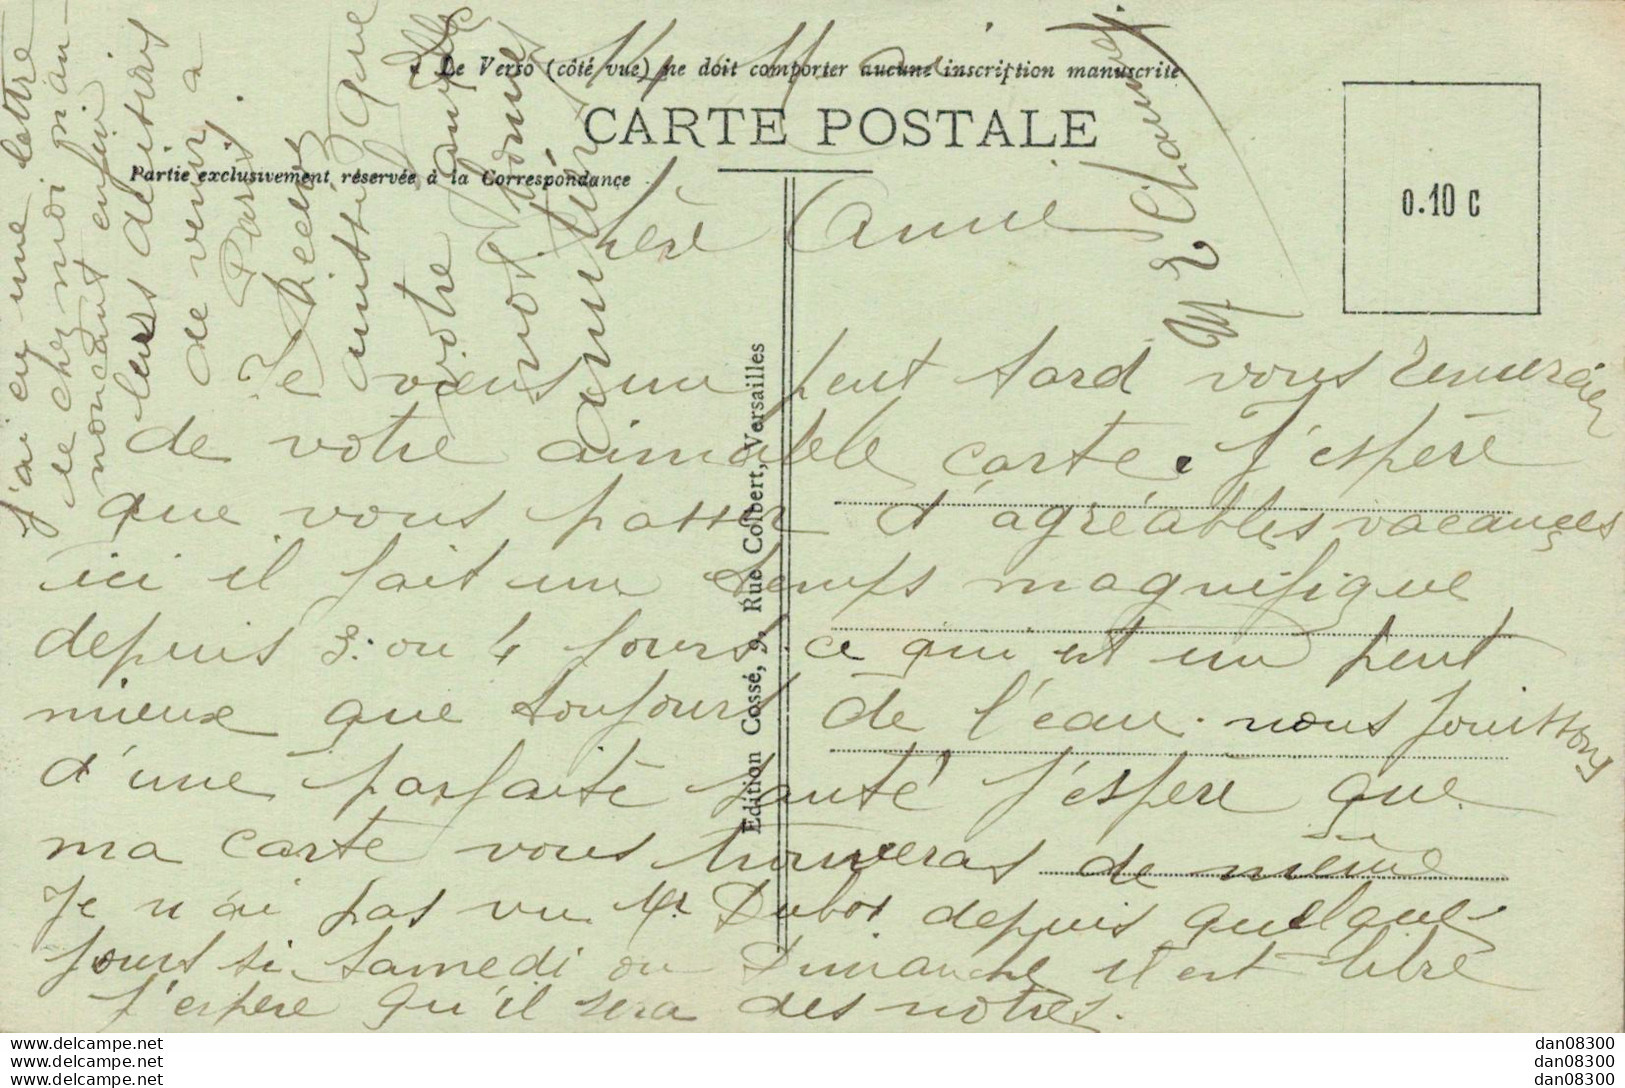 Le Verso (côté vue) ne doit comporter aucune inscription manuscrite
CARTE POSTALE
Partie exclusivement réservée à la Correspondance
0.10 C
Edition Cossé, 9, Rue Colbert, Versailles
Chère Amie
Je viens un peut tard vous remercier
de votre aimable carte. J'espère
que vous passer d'agréables vacances
ici il fait un temps magnifique
depuis 3 ou 4 jours ce qui est un peut
mieux que toujours de l'eau. nous jouissons
d'une parfaite santé J'espère que
ma carte vous trouveras de même
Je n'ai pas vu Mr Dubos depuis quelques
jours si Samedi ou Dimanche il est libre
J'espère qu'il sera des notres.
J'ai eu une lettre
de chez moi m'an-
noncant enfin
leurs désirs
de venir à
Paris.
Recevez
ainsi que
votre famille
nos bonnes
amitiés
M L Chauvei
dan08300
dan08300
dan08300